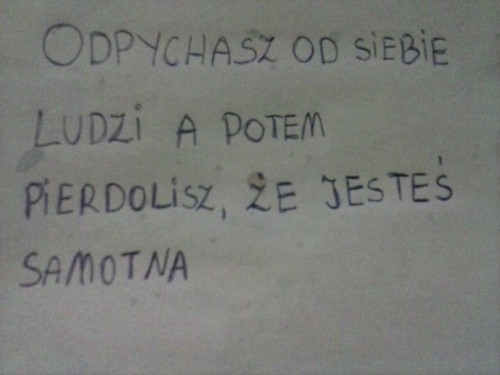 ODPYCHASZ OD SiEBiE
LUDZi A POTEM
PiERDOLiSZ, ŻE JESTEŚ
SAMOTNA